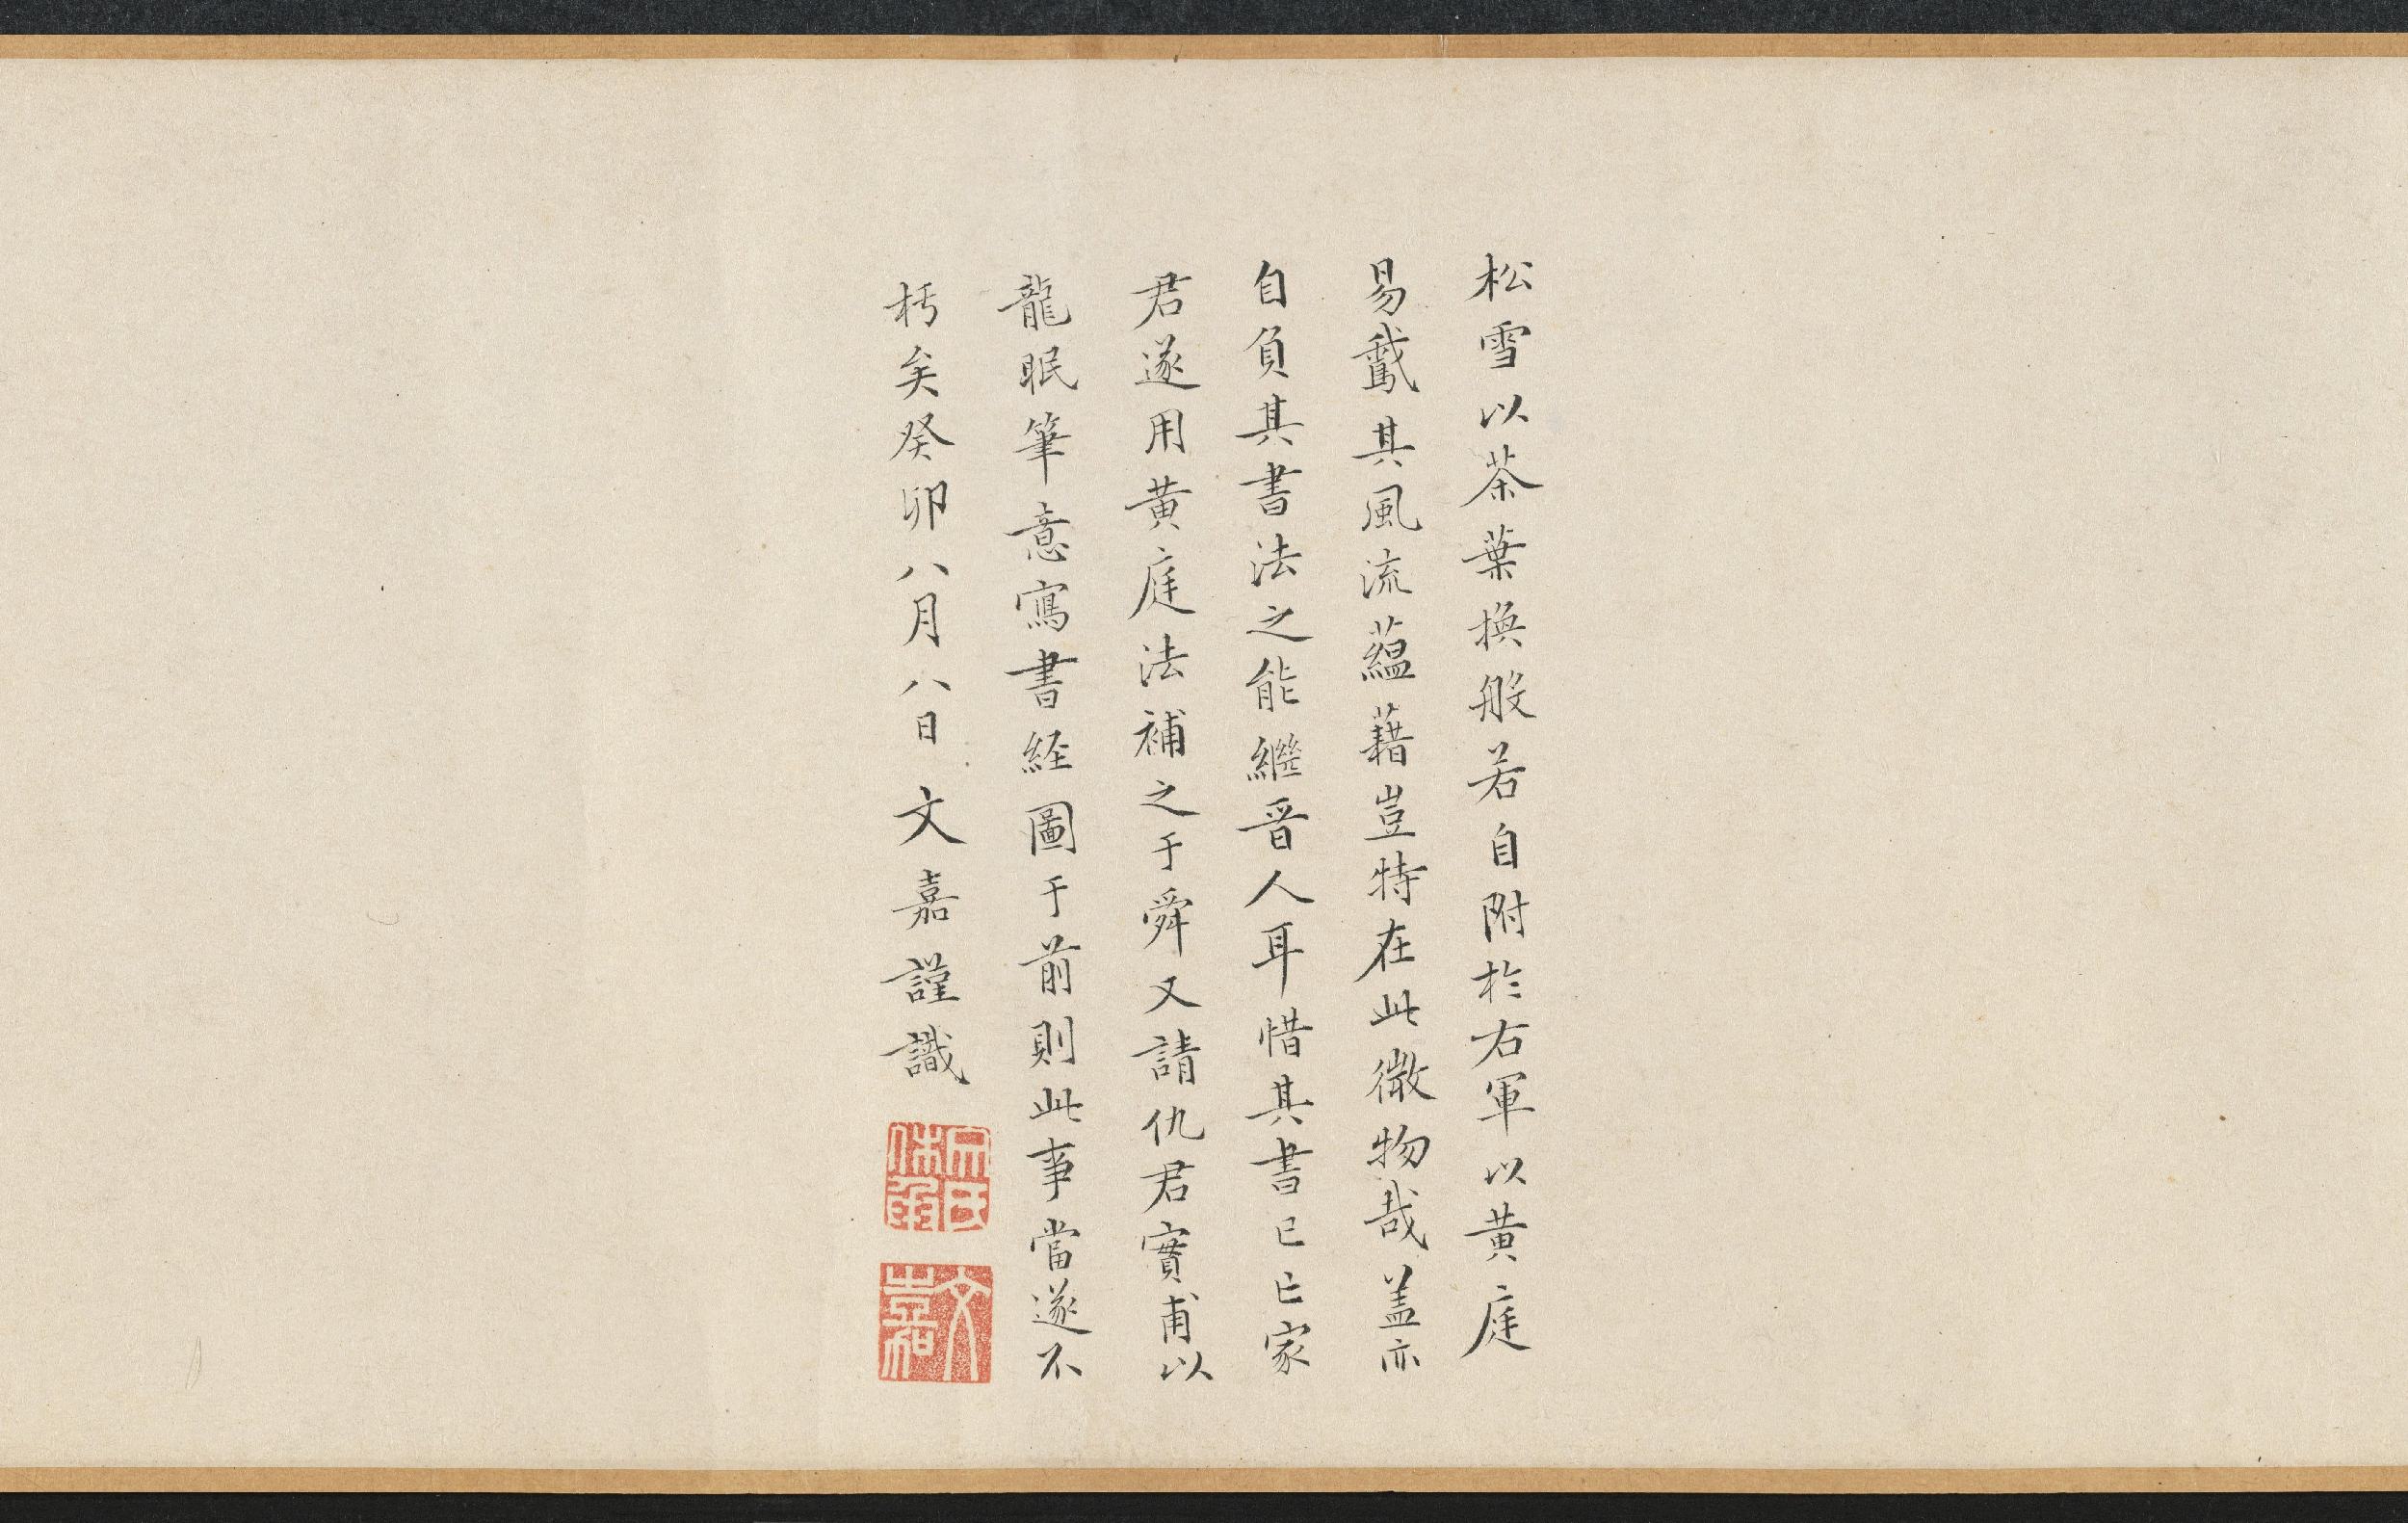 松雪以茶葉換般若自附於右軍以黄庭
易鵞其風流蘊藉豈特在此微物哉盖亦
自負其書法之能繼晋人耳惜其書已亡家
君遂用黄庭法補之于舜又請仇君實甫以
龍眠筆意寫書経圖于前則此事當遂不
朽矣癸卯八月八日文嘉謹識
文嘉